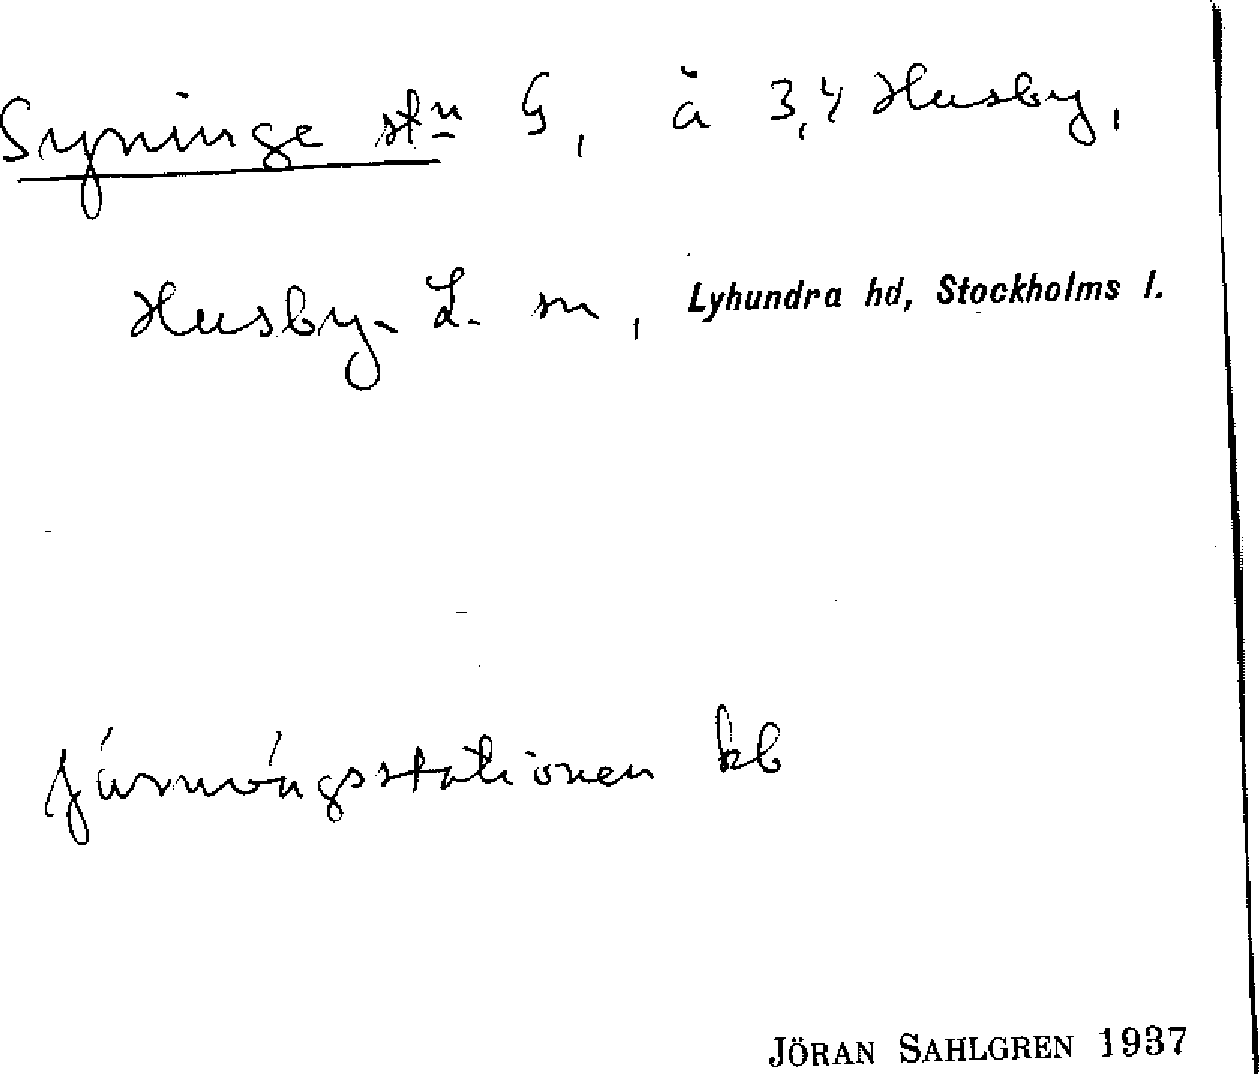 Syninge stn G, å 3,4 Husby,
Husby-L. sn, Lyhundra hd, Stockholms l.
järnvägsstationen kb
JÖRAN SAHLGREN 1937